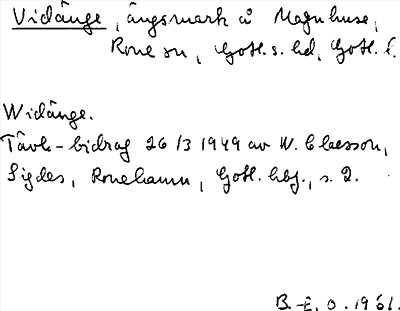 Vidänge, ängsmark å Magnhuse,
Rone sn, Gotl. s. hd, Gotl. l.
Widänge.
Tävl.-bidrag 26/3 1949 av W. Claesson,
Sigdes, Ronehamn, Gotl. hbg., s. 2.
B.-E. O. 1961.